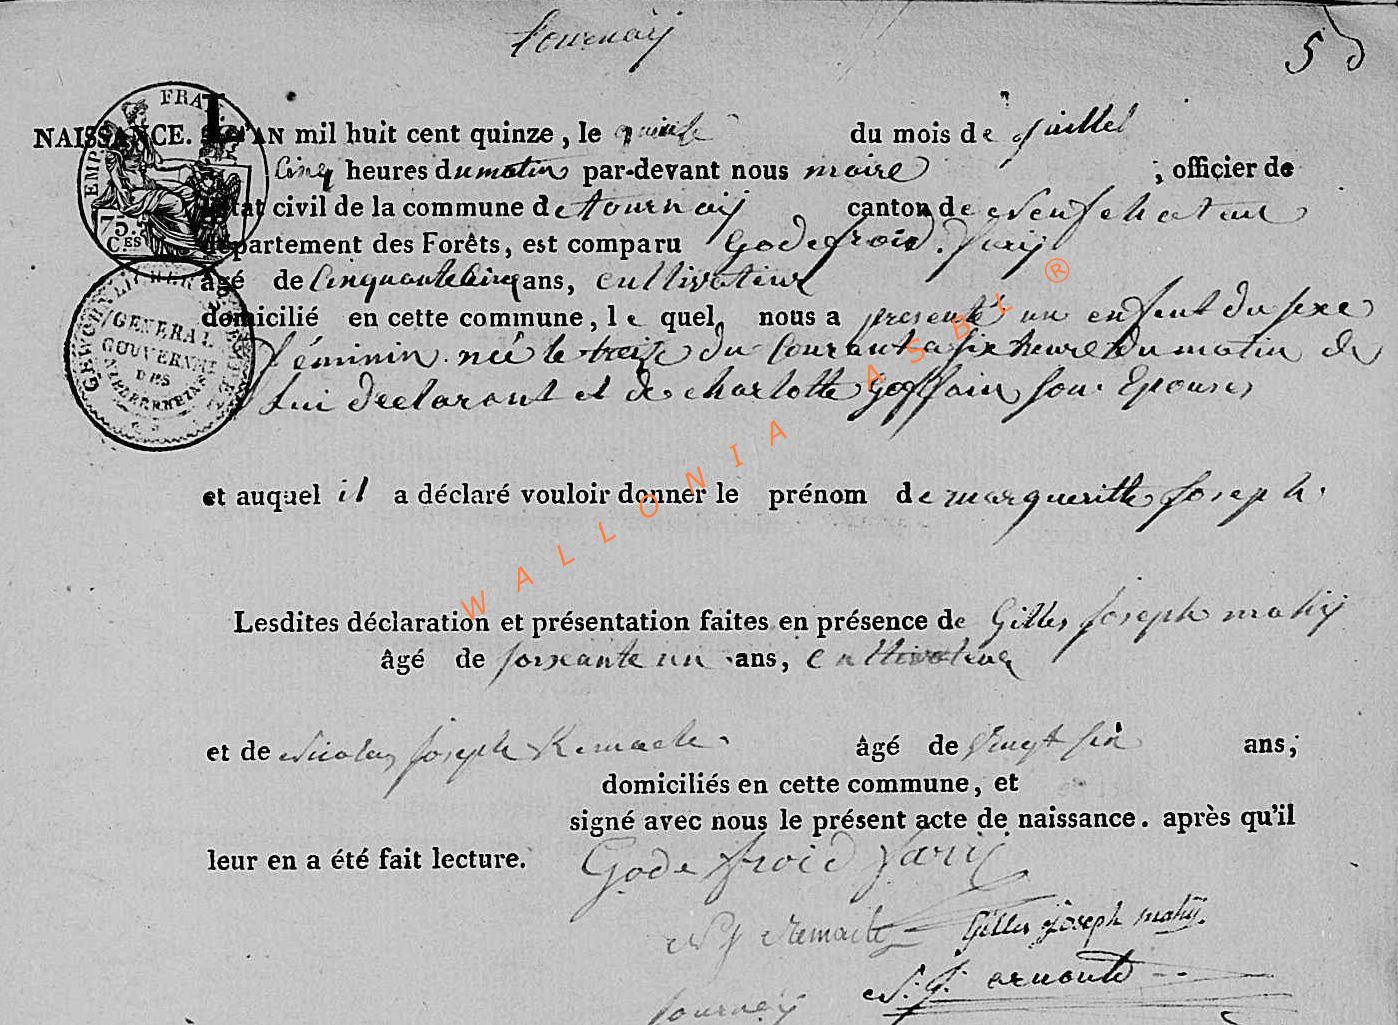 tournaÿ
5
EMP FRA
75. CES
GENERAL GOUVERNMT DES
NAISSANCE. L'AN mil huit cent quinze, le quinze du mois de juillet
cinq heures du matin par-devant nous maire ; officier de
l'état civil de la commune de tournaÿ canton de neufchateau
département des Forêts, est comparu Godefroid jariÿ
âgé de cinquante cinq ans, cultivateur
domicilié en cette commune, le quel nous a presenté un enfant du sexe
féminin née le treize du courant a six heures du matin de
lui declarant et de charlotte Goffain son Epouse
et auquel il a déclaré vouloir donner le prénom de margueritte joseph.
Lesdites déclaration et présentation faites en présence de Gilles joseph mahÿ
âgé de soixante un ans, cultivateur
et de nicolas joseph Remacle âgé de vingt six ans;
domiciliés en cette commune, et
signé avec nous le présent acte de naissance. après qu'il
leur en a été fait lecture. Godefroid jariÿ
N J Remacle Gilles joseph mahÿ.
N. J. arnould
tournaÿ
WALLONIA ASBL ®